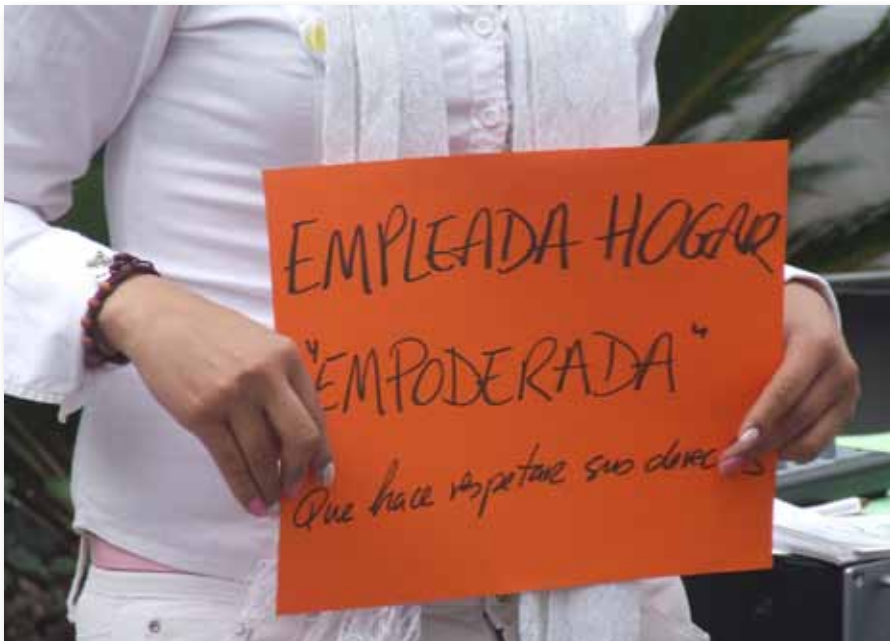 EMPLEADA HOGAR
"EMPODERADA"
Que hace respetar sus derechos